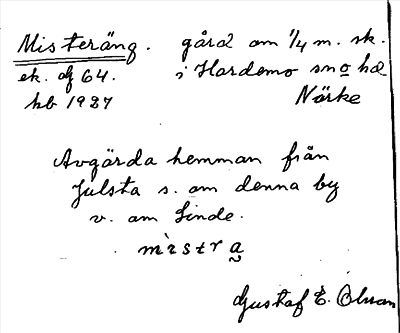 Misteräng. gård om 1/4 m. sk.
ek. af 64. i Hardemo sn o hd
hb 1927 Närke
Avgärda hemman från
Julsta s. om denna by
v. om Linde.
mìstra
Gustaf E. Olsson